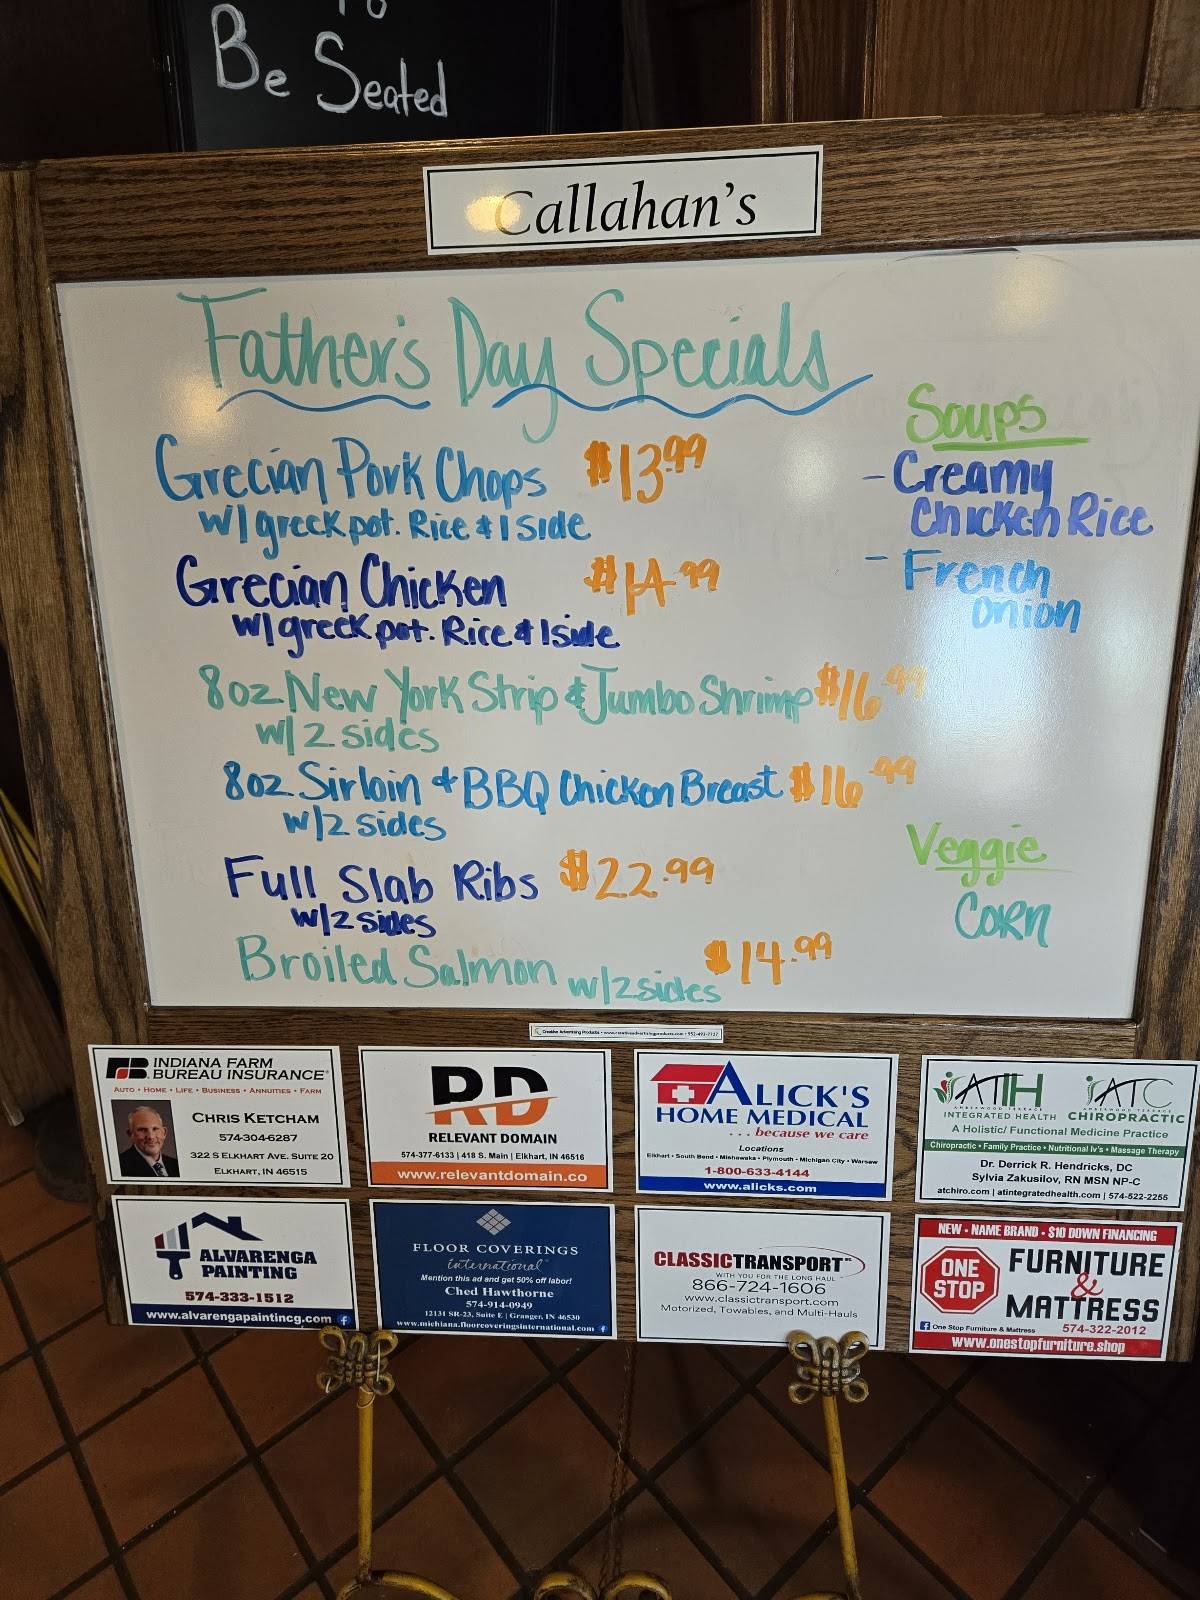 To
Be Seated
Callahan's
Father's Day Specials
Grecian Pork Chops $13.99
w/ greek pot. Rice & 1 side
Grecian Chicken $14.99
w/ greek pot. Rice & 1 side
8oz New York Strip & Jumbo Shrimp $16.99
w/ 2 sides
8oz Sirloin & BBQ Chicken Breast $16.99
w/ 2 sides
Full Slab Ribs $22.99
w/ 2 sides
Broiled Salmon w/ 2 sides $14.99
Soups
- Creamy
Chicken Rice
- French
onion
Veggie
Corn
Creative Advertising Products • www.creativeadvertisingproducts.com • 952-492-7737
INDIANA FARM
BUREAU INSURANCE
AUTO • HOME • LIFE • BUSINESS • ANNUITIES • FARM
CHRIS KETCHAM
574-304-6287
322 S ELKHART AVE. SUITE 20
ELKHART, IN 46515
RD
RELEVANT DOMAIN
574-377-6133 | 418 S. Main | Elkhart, IN 46516
www.relevantdomain.co
ALICK'S
HOME MEDICAL
. . . because we care
Locations
Elkhart • South Bend • Mishawaka • Plymouth • Michigan City • Warsaw
1-800-633-4144
www.alicks.com
ATIH ATC
AMBERWOOD TERRACE AMBERWOOD TERRACE
INTEGRATED HEALTH CHIROPRACTIC
A Holistic/ Functional Medicine Practice
Chiropractic • Family Practice • Nutritional Iv's • Massage Therapy
Dr. Derrick R. Hendricks, DC
Sylvia Zakusilov, RN MSN NP-C
atchiro.com | atintegratedhealth.com | 574-522-2255
ALVARENGA
PAINTING
574-333-1512
www.alvarengapaintincg.com f
FLOOR COVERINGS
international
Mention this ad and get 50% off labor!
Ched Hawthorne
574-914-0949
12131 SR-23, Suite E | Granger, IN 46530
www.michiana.floorcoveringsinternational.com f
CLASSICTRANSPORT
WITH YOU FOR THE LONG HAUL
866-724-1606
www.classictransport.com
Motorized, Towables, and Multi-Hauls
NEW - NAME BRAND - $10 DOWN FINANCING
ONE
STOP
FURNITURE
&
MATTRESS
f One Stop Furniture & Mattress 574-322-2012
www.onestopfurniture.shop